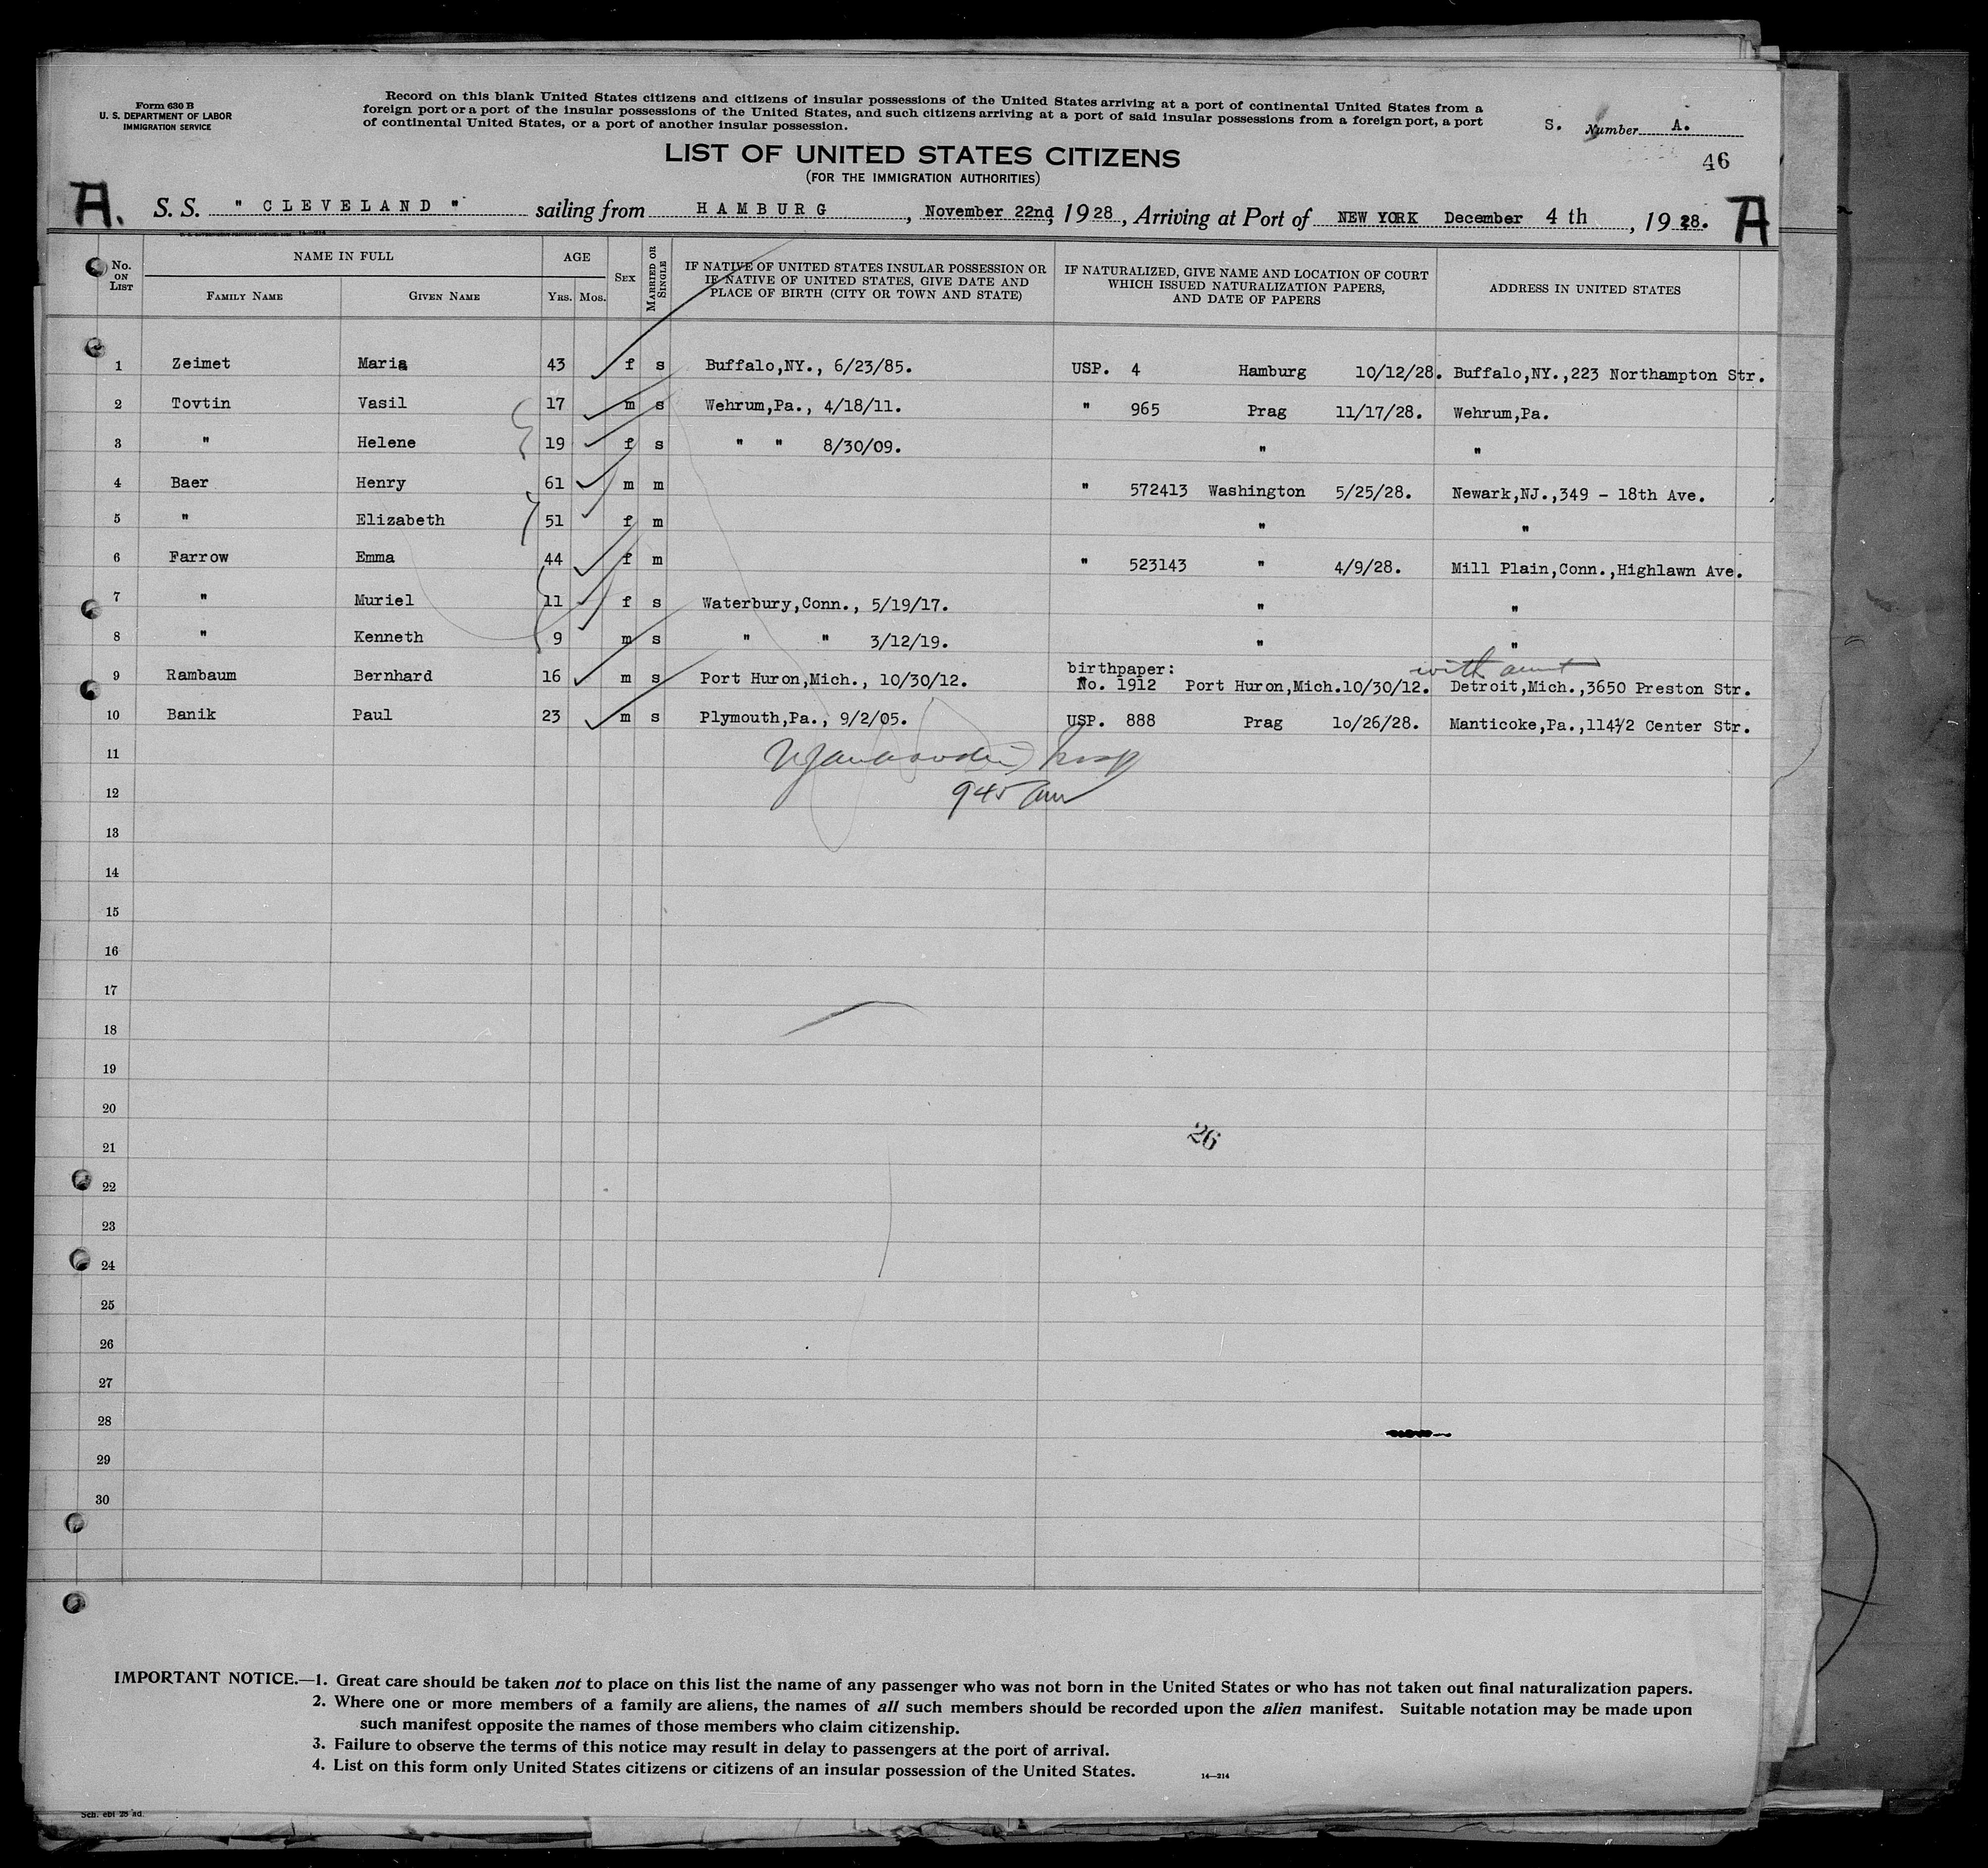 Form 630 B
U. S. DEPARTMENT OF LABOR
IMMIGRATION SERVICE
Record on this blank United States citizens and citizens of insular possessions of the United States arriving at a port of continental United States from a
foreign port or a port of the insular possessions of the United States, and such citizens arriving at a port of said insular possessions from a foreign port, a port
of continental United States, or a port of another insular possession.
S. Number A.
46
LIST OF UNITED STATES CITIZENS
(FOR THE IMMIGRATION AUTHORITIES)
A. S. S. " CLEVELAND " sailing from HAMBURG, November 22nd, 1928, Arriving at Port of NEW YORK December 4 th, 1928. A
No. ON LIST
NAME IN FULL
FAMILY NAME GIVEN NAME
AGE
YRS. MOS.
SEX
MARRIED OR SINGLE
IF NATIVE OF UNITED STATES INSULAR POSSESSION OR
IF NATIVE OF UNITED STATES, GIVE DATE AND
PLACE OF BIRTH (CITY OR TOWN AND STATE)
IF NATURALIZED, GIVE NAME AND LOCATION OF COURT
WHICH ISSUED NATURALIZATION PAPERS,
AND DATE OF PAPERS
ADDRESS IN UNITED STATES
1 Zeimet Maria 43 f s Buffalo,NY., 6/23/85. USP. 4 Hamburg 10/12/28. Buffalo,NY.,223 Northampton Str.
2 Tovtin Vasil 17 m s Wehrum,Pa., 4/18/11. " 965 Prag 11/17/28. Wehrum,Pa.
3 " Helene 19 f s " " 8/30/09. " "
4 Baer Henry 61 m m " 572413 Washington 5/25/28. Newark,NJ.,349 - 18th Ave.
5 " Elizabeth 51 f m " "
6 Farrow Emma 44 f m " 523143 " 4/9/28. Mill Plain,Conn.,Highlawn Ave.
7 " Muriel 11 f s Waterbury,Conn., 5/19/17. " "
8 " Kenneth 9 m s " " 3/12/19. " "
with aunt
9 Rambaum Bernhard 16 m s Port Huron,Mich., 10/30/12. birthpaper: No. 1912 Port Huron,Mich.10/30/12. Detroit,Mich.,3650 Preston Str.
10 Banik Paul 23 m s Plymouth,Pa., 9/2/05. USP. 888 Prag 10/26/28. Manticoke,Pa.,114½ Center Str.
11
12 945 am
13
14
15
16
17
18
19
20
21 26
22
23
24
25
26
27
28
29
30
IMPORTANT NOTICE.—1. Great care should be taken not to place on this list the name of any passenger who was not born in the United States or who has not taken out final naturalization papers.
2. Where one or more members of a family are aliens, the names of all such members should be recorded upon the alien manifest. Suitable notation may be made upon
such manifest opposite the names of those members who claim citizenship.
3. Failure to observe the terms of this notice may result in delay to passengers at the port of arrival.
4. List on this form only United States citizens or citizens of an insular possession of the United States.
14—214